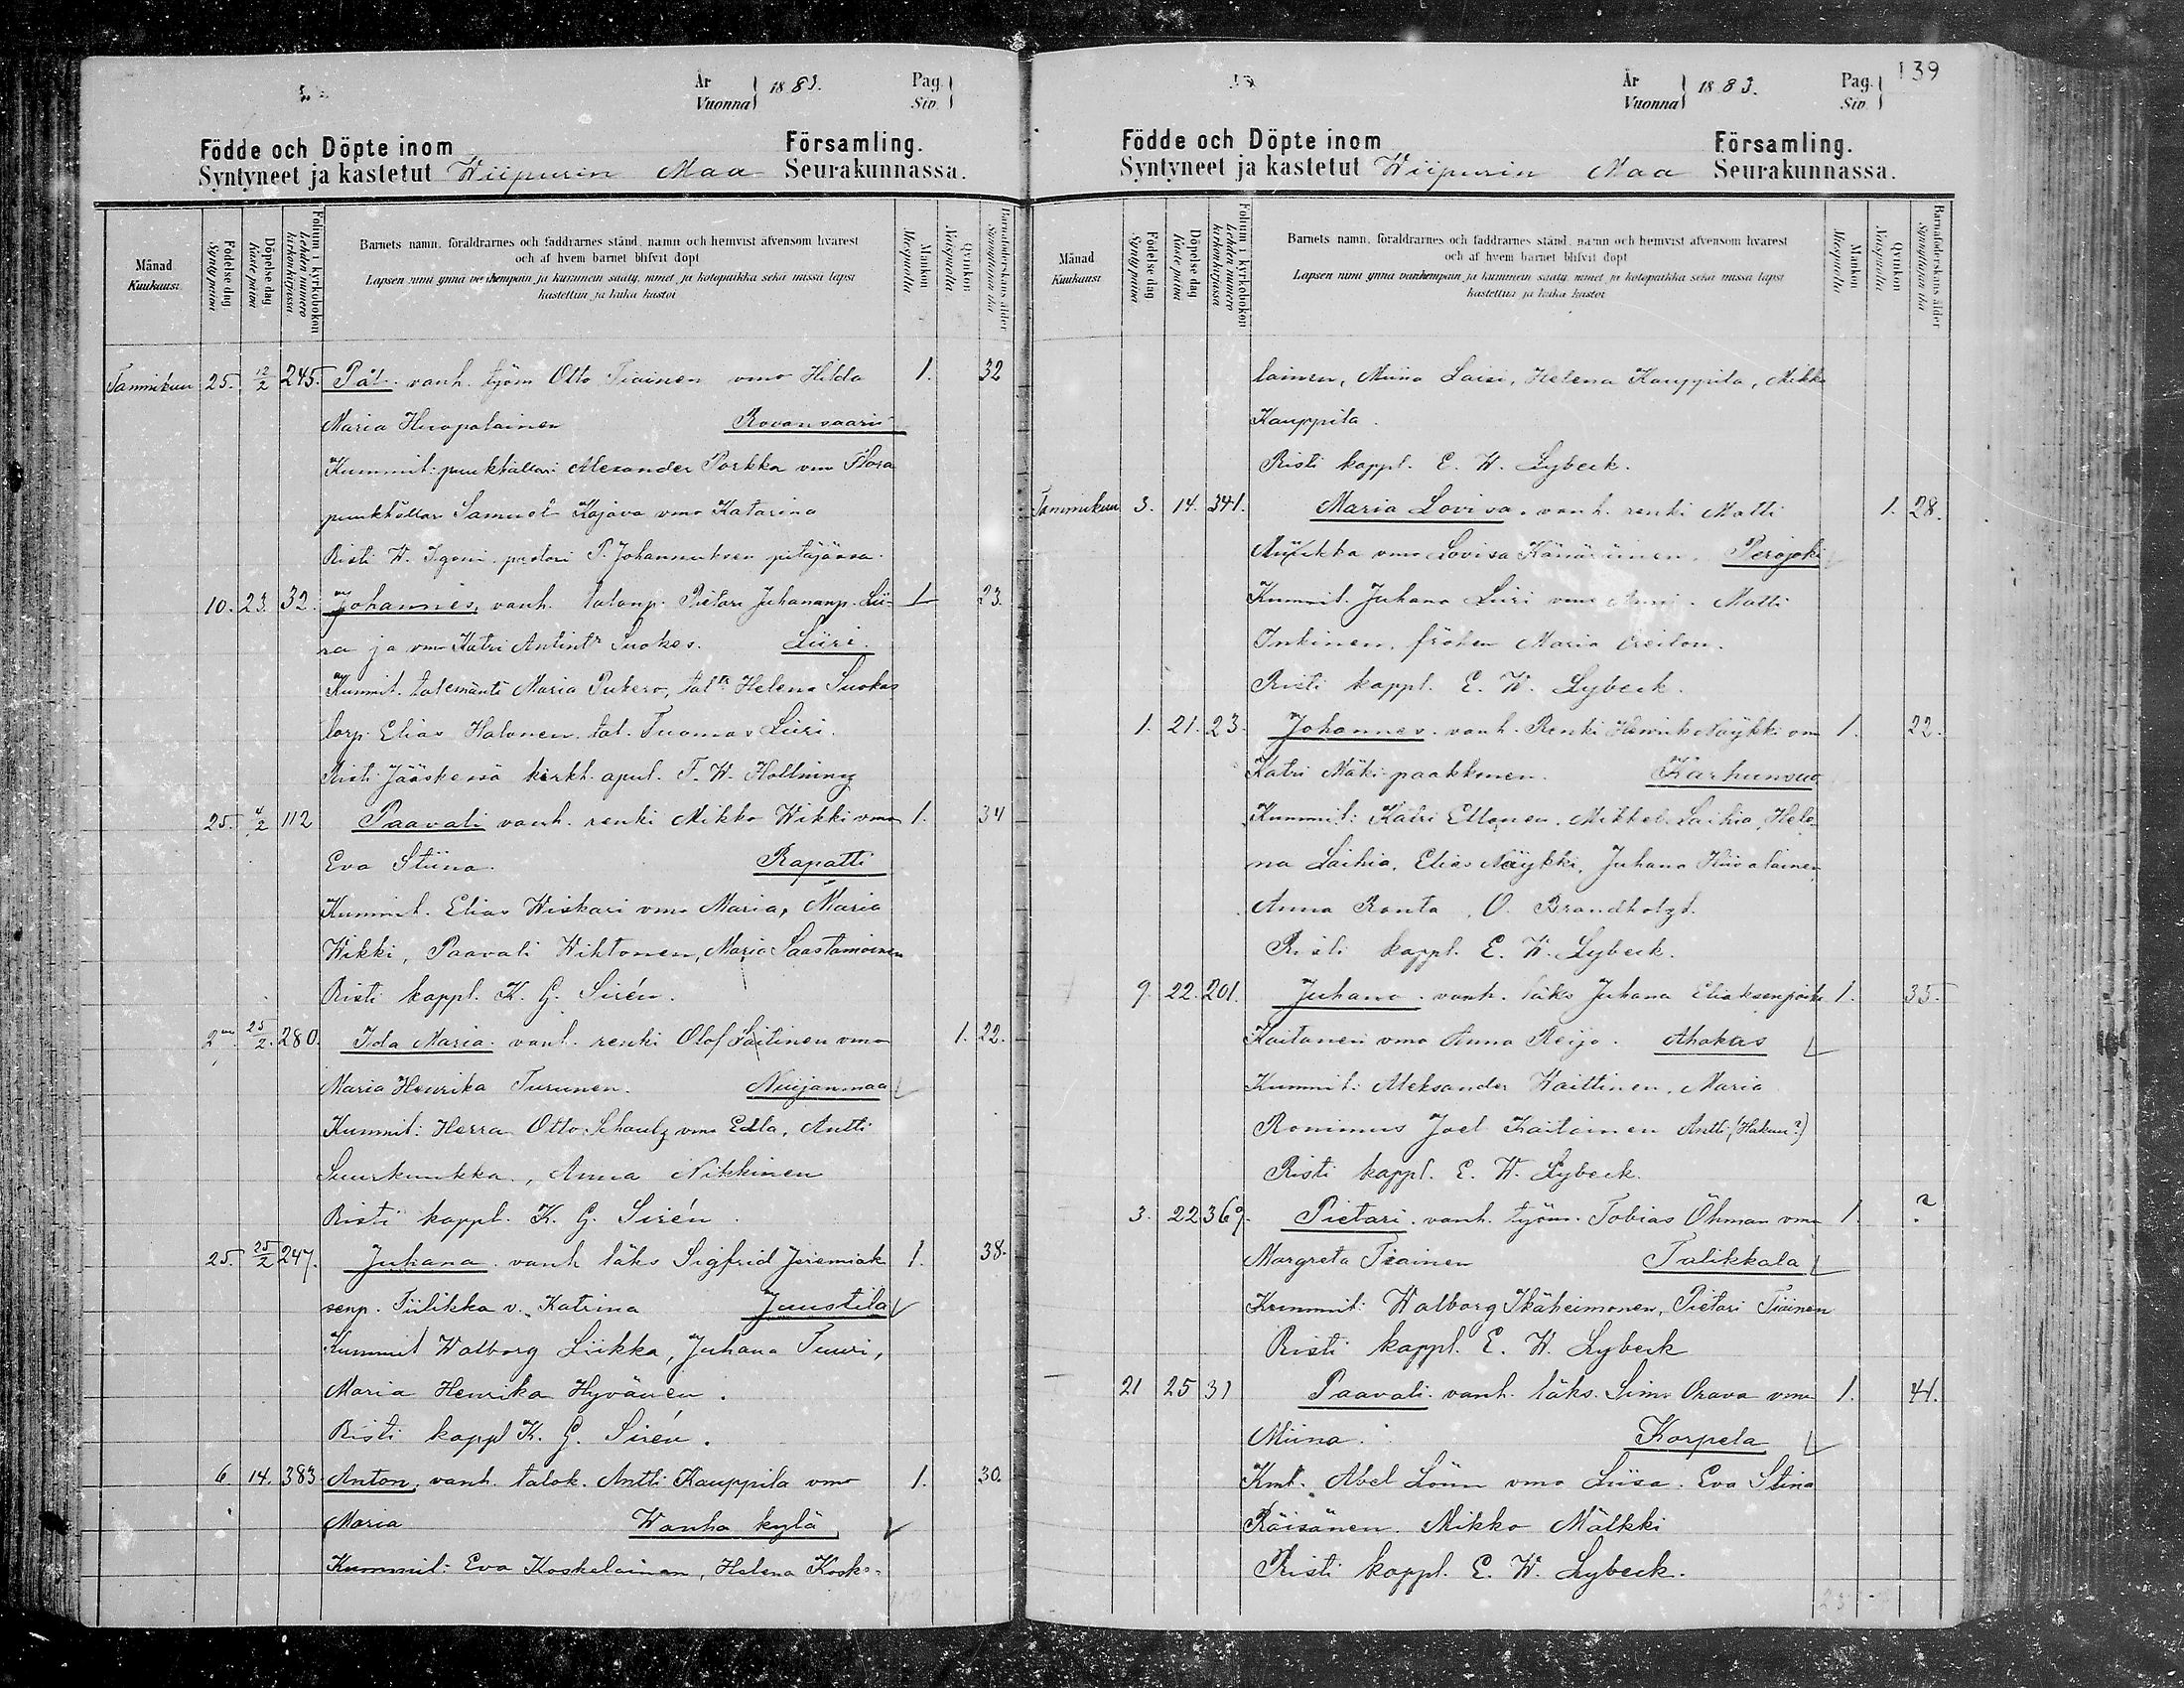 År
Vuonna 1883.
Pag.
Siv.
Födde och Döpte inom Församling.
Syntyneet ja kastetut Wiipurin Maa Seurakunnassa.
Månad
Kuukausi
Födelse dag
Syntypäivä
Döpelse dag
Kaste päivä
Folium i kyrkoboken
Lehden numero kirkonkirjassa
Barnets namn, föräldrarnes och faddrarnes stånd, namn och hemvist äfvensom hvarest
och af hvem barnet blifvit döpt
Lapsen nimi ynnä vanhempain ja kummein sääty, nimet ja kotopaikka sekä missä lapsi
kastettiin ja kuka kastoi
Mankön
Miespuolia
Qvinkön
Naispuolia
Barnaföderskans ålder
Synnyttäjän ikä
Tammikuu 25. 12/2 245. Pål. vanh. työm Otto Tiainen vmo Hilda 1. 32
Maria Huopalainen Rovansaari
Kummit: punkhallari Alexander Porkka vmo Flora
punkhallari Samuel Kajava vmo Katarina
Risti W. Igoni pastori P. Johanneksen pitäjässä.
10. 23. 32. Johannes, vanh. talonp. Pietari Juhananp. Lii- 1 23.
ra ja vmo Katri Antint:r Suokas. Liiri.
Kummit. talemäntä Maria Pukero, tal:tr Helena Suokas
torp. Elias Halonen tal. Tuomas Liiri.
Risti Jääskessä kirkh. apul. F. W. Hollming
25. 4/2 112 Paavali vanh. renki Mikko Wikki vmo 1. 34
Eva Stiina. Rapatti
Kummit. Elias Wiskari vmo Maria, Maria
Wikki, Paavali Wihtonen, Maria Saastamoinen
Risti kappl. K. G. Sirén.
2 25/2. 280. Ida Maria. vanh. renki Olof Laitinen vmo 1. 22.
Maria Henrika Turunen. Nuijanmaa
Kummit: Herra Otto Schoultz vmo Edla, Antti
Suurkuukka, Anna Nikkinen
Risti kappl. K. G. Sirén.
25. 25/2 247. Juhana. vanh läks Sigfrid Jeremiak 1. 38.
senp. Tiilikka v. Katrina Juustila
Kummit Walborg Liikka, Juhana Tuuri,
Maria Henrika Hyvänen.
Risti kappl K. G. Sirén.
6 14. 383 Anton, vanh. talok. Antti Kauppila vmo 1. 30.
Maria Wanha kylä
Kummit: Eva Koskelainen, Helena Koske-
139
År
Vuonna 1883.
Pag.
Siv.
Födde och Döpte inom Församling.
Syntyneet ja kastetut Wiipurin Maa Seurakunnassa.
Månad
Kuukausi
Födelse dag
Syntypäivä
Döpelse dag
Kaste päivä
Folium i kyrkoboken
Lehden numero kirkonkirjassa
Barnets namn, föräldrarnes och faddrarnes stånd, namn och hemvist äfvensom hvarest
och af hvem barnet blifvit döpt
Lapsen nimi ynnä vanhempain ja kummein sääty, nimet ja kotopaikka sekä missä lapsi
kastettiin ja kuka kastoi
Mankön
Miespuolia
Qvinkön
Naispuolia
Barnaföderskans ålder
Synnyttäjän ikä
lainen, Miina Laisi, Helena Kauppila, Mikko
Kauppila.
Risti kappl. E. W. Lybeck.
Tammikuu 3. 14. 341. Maria Lovisa. vanh. renki Matti 1. 28.
vmo Lovisa Känäräinen. Perojoki
Kummit. Juhana Liiri vmo Anni. Matti
Inkinen, fröken Maria
Risti kappl. E. W. Lybeck.
1. 21. 23. Johannes. vanh. Renki Henrik Näykki vmo 1. 22.
Katri Mäki-paakkonen. Karhunsuo
Kummit: Katri Ellonen. Mikkel Laihia, Hele-
na Laihia, Elias Näykki, Juhana Huvalainen
Anna Ronta, O. Brandholzt.
Risti kappl. E. W. Lybeck.
9. 22. 201. Juhana. vanh. läks Juhana Eliaksenpoika 1. 35.
Kaitanen vmo Anna Reijo. Ahokas
Kummit: Aleksander Waittinen, Maria
Ronimus Joel Kaitainen Antti (Hakuu?)
Risti kappl. E. W. Lybeck.
3. 22 369. Pietari. vanh. työm. Tobias Öhman vmo 1. ?
Margreta Tiainen Talikkala
Kummit: Walborg Ikäheimonen, Pietari Tiainen
Risti kappl. E. W. Lybeck
21 25 31 Paavali. vanh. läks. Simo Orava vmo 1. 41.
Miina. Karpela
Kmt. Abel Lönn vmo Liisa. Eva Stina
Räisänen. Mikko Mälkki
Risti kappl. E. W. Lybeck.